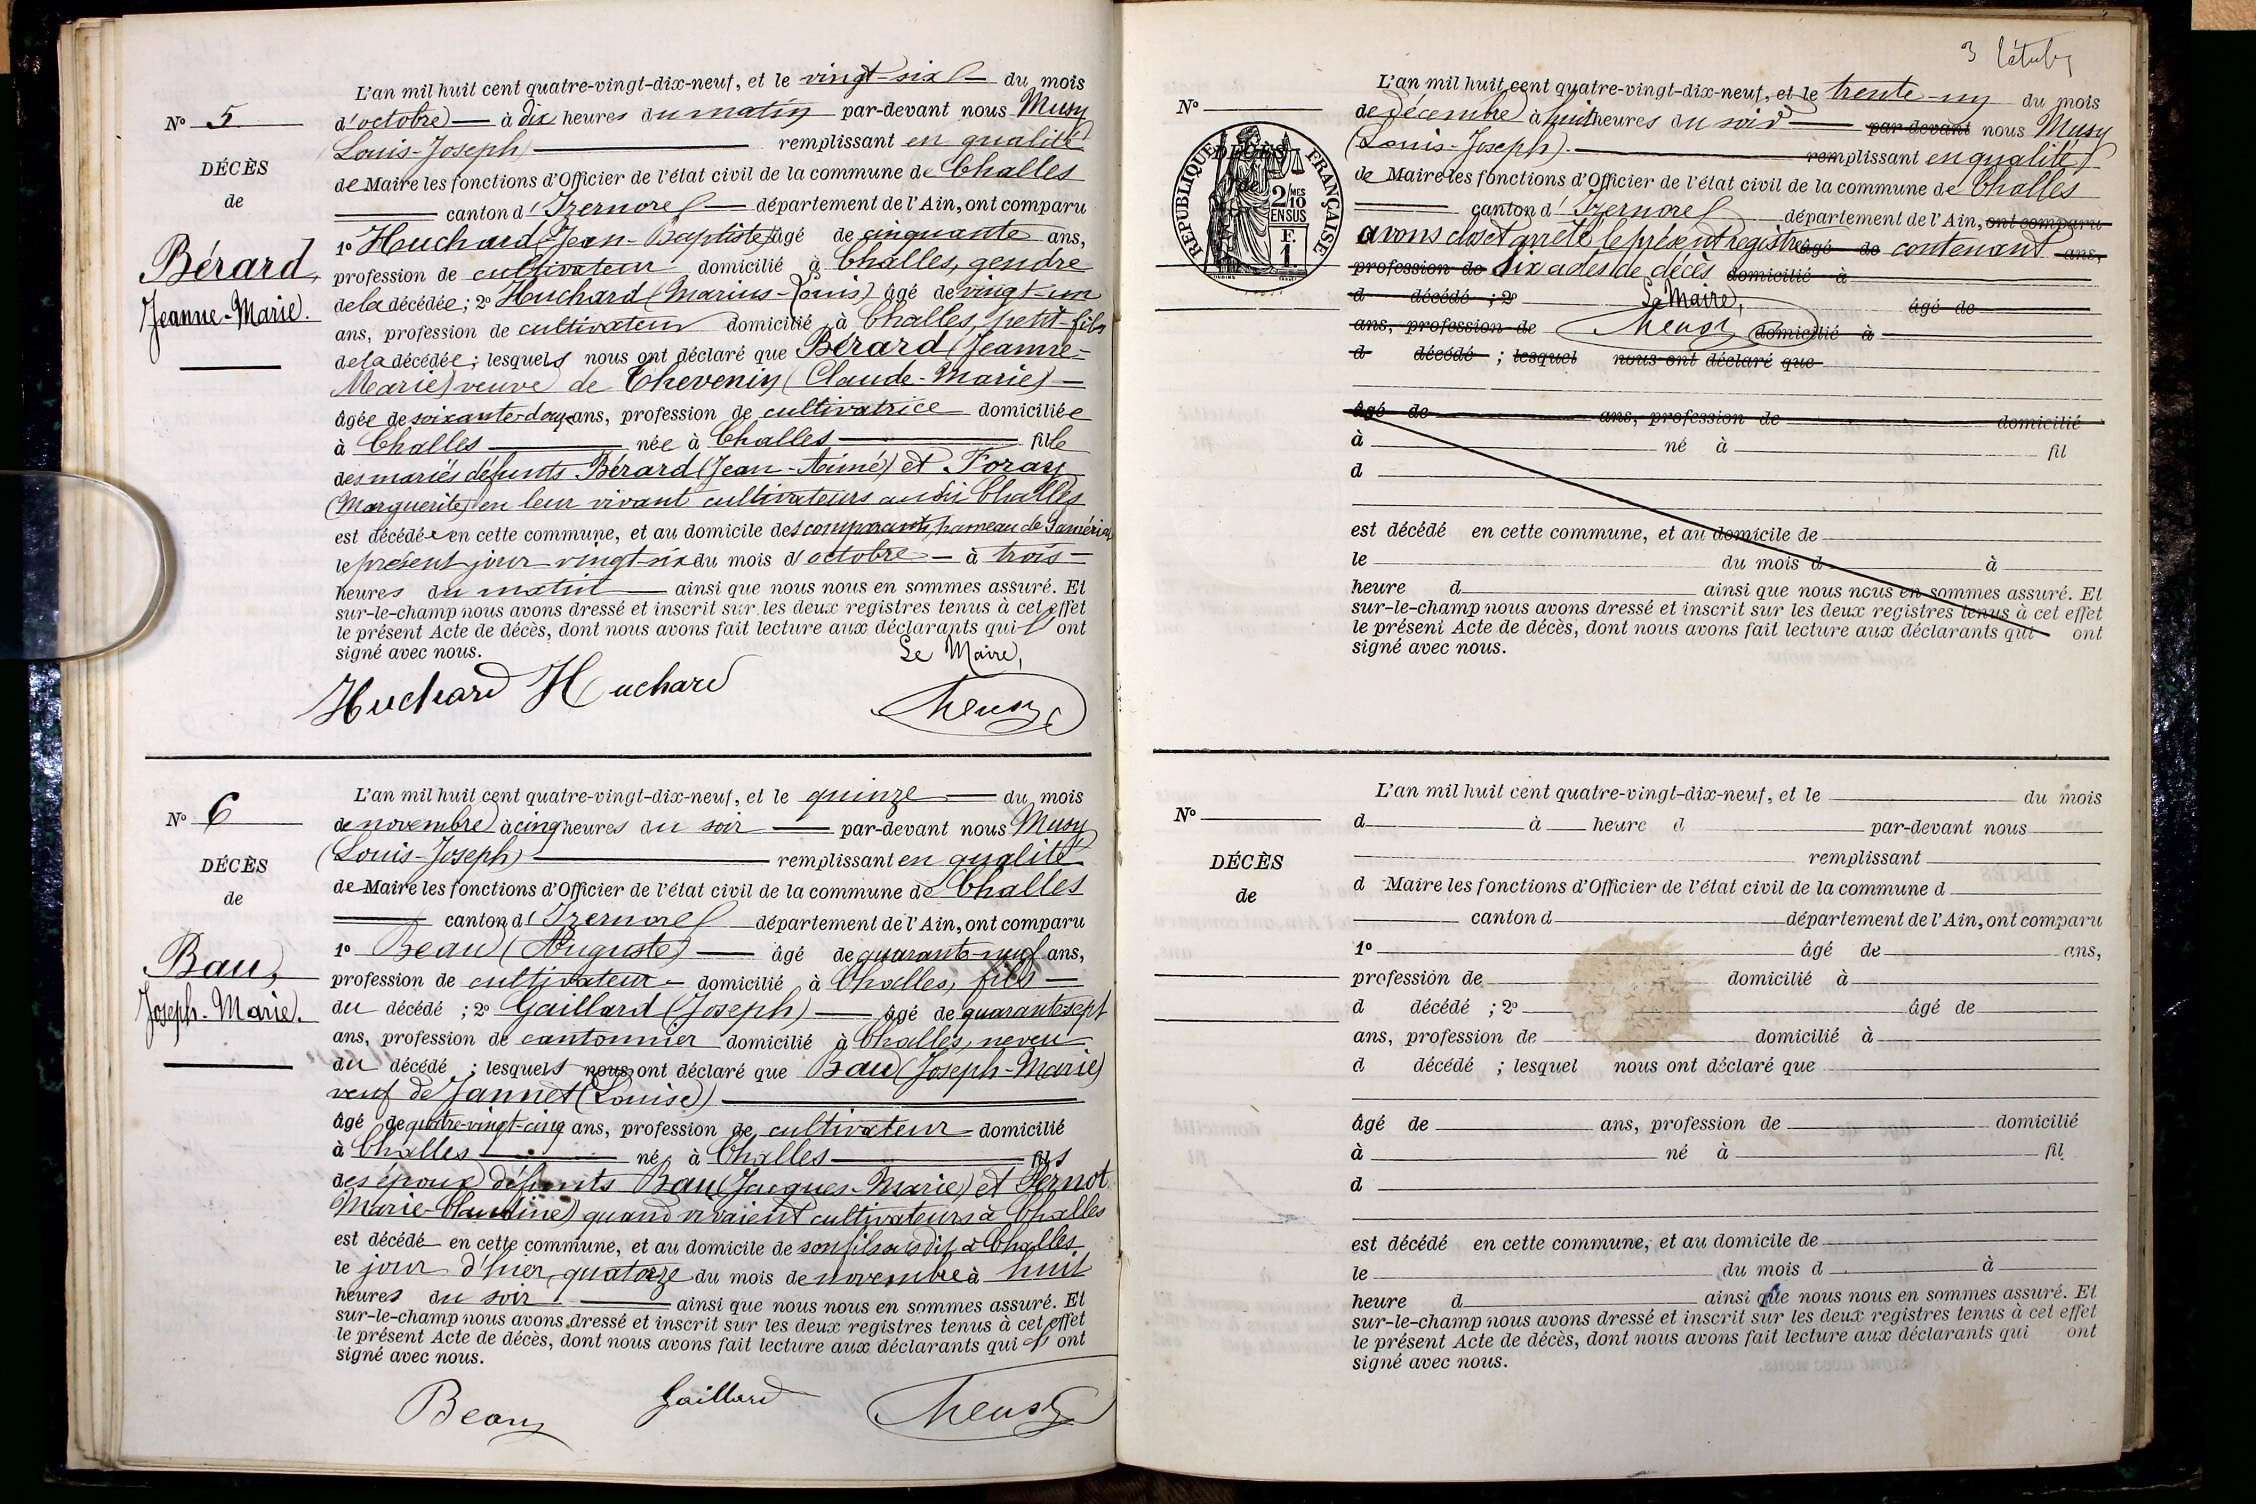 L'an mil huit cent quatre-vingt-dix-neuf, et le vingt-six du mois
N° 5 d'octobre à dix heures du matin par-devant nous Musy
(Louis-Joseph) remplissant en qualité
DÉCÈS
de Maire les fonctions d'Officier de l'état civil de la commune de Challes
de
canton d'Izernore département de l'Ain, ont comparu
1° Huchard (Jean-Baptiste) âgé de cinquante ans,
Bérard,
profession de cultivateur domicilié à Challes, gendre
Jeanne-Marie.
de la décédée ; 2° Huchard (Marius-Louis) âgé de vingt-un
ans, profession de cultivateur domicilié à Challes, petit-fils
de la décédée ; lesquels nous ont déclaré que Bérard (Jeanne-
Marie) veuve de Thevenin (Claude-Marie)
âgée de ans, profession de cultivatrice domiciliée
à Challes née à Challes fille
des mariés défunts Bérard (Jean-Aimé) et Foray
(Marguerite) en leur vivant cultivateurs audit Challes
est décédée en cette commune, et au domicile des comparants, hameau de
le présent jour vingt-six du mois d'octobre à trois
heures du matin ainsi que nous nous en sommes assuré. Et
sur-le-champ nous avons dressé et inscrit sur les deux registres tenus à cet effet
le présent Acte de décès, dont nous avons fait lecture aux déclarants qui ont
signé avec nous.
Le Maire,
Huchard Huchard
Musy
L'an mil huit cent quatre-vingt-dix-neuf, et le quinze du mois
N° 6 de novembre à cinq heures du soir par-devant nous Musy
(Louis-Joseph) remplissant en qualité
DÉCÈS
de Maire les fonctions d'Officier de l'état civil de la commune de Challes
de
canton d'Izernore département de l'Ain, ont comparu
1° Beau (Auguste) âgé de quarante-neuf ans,
Bau,
profession de cultivateur domicilié à Challes, fils
Joseph-Marie.
du décédé ; 2° Gaillard (Joseph) âgé de quarante-sept
ans, profession de cantonnier domicilié à Challes, neveu
du décédé ; lesquels nous ont déclaré que Bau (Joseph-Marie)
veuf de Jannet (Louise)
âgé de quatre-vingt-cinq ans, profession de cultivateur domicilié
à Challes né à Challes fils
des époux défunts Bau (Jacques-Marie) et Pernot
Marie-Claudine) quand vivaient cultivateurs à Challes
est décédé en cette commune, et au domicile de son fils susdit à Challes
le jour d'hier, quatorze du mois de novembre à huit
heures du soir ainsi que nous nous en sommes assuré. Et
sur-le-champ nous avons dressé et inscrit sur les deux registres tenus à cet effet
le présent Acte de décès, dont nous avons fait lecture aux déclarants qui ont
signé avec nous.
Beau Gaillard Musy
3
L'an mil huit cent quatre-vingt-dix-neuf, et le trente-un du mois
N° de décembre à huit heures du soir par-devant nous Musy
(Louis-Joseph). remplissant en qualité
RÉPUBLIQUE FRANÇAISE
DÉCÈS
de
2/10 MES
EN SUS
F. 1
de Maire les fonctions d'Officier de l'état civil de la commune de Challes
canton d'Izernore département de l'Ain, ont comparu
avons clos et arrêté le présent registre âgé de contenant ans,
profession de six actes de décès domicilié à
d décédé ; 2° Le Maire, âgé de
ans, profession de Musy domicilié à
d décédé ; lesquel nous ont déclaré que
âgé de ans, profession de domicilié
à né à fil
d
est décédé en cette commune, et au domicile de
le du mois d à
heure d ainsi que nous nous en sommes assuré. Et
sur-le-champ nous avons dressé et inscrit sur les deux registres tenus à cet effet
le présent Acte de décès, dont nous avons fait lecture aux déclarants qui ont
signé avec nous.
L'an mil huit cent quatre-vingt-dix-neuf, et le du mois
N° d à heure d par-devant nous
remplissant
DÉCÈS
d Maire les fonctions d'Officier de l'état civil de la commune d
de
canton d département de l'Ain, ont comparu
1° âgé de ans,
profession de domicilié à
d décédé ; 2° âgé de
ans, profession de domicilié à
d décédé ; lesquel nous ont déclaré que
âgé de ans, profession de domicilié
à né à fil
d
est décédé en cette commune, et au domicile de
le du mois d à
heure d ainsi que nous nous en sommes assuré. Et
sur-le-champ nous avons dressé et inscrit sur les deux registres tenus à cet effet
le présent Acte de décès, dont nous avons fait lecture aux déclarants qui ont
signé avec nous.